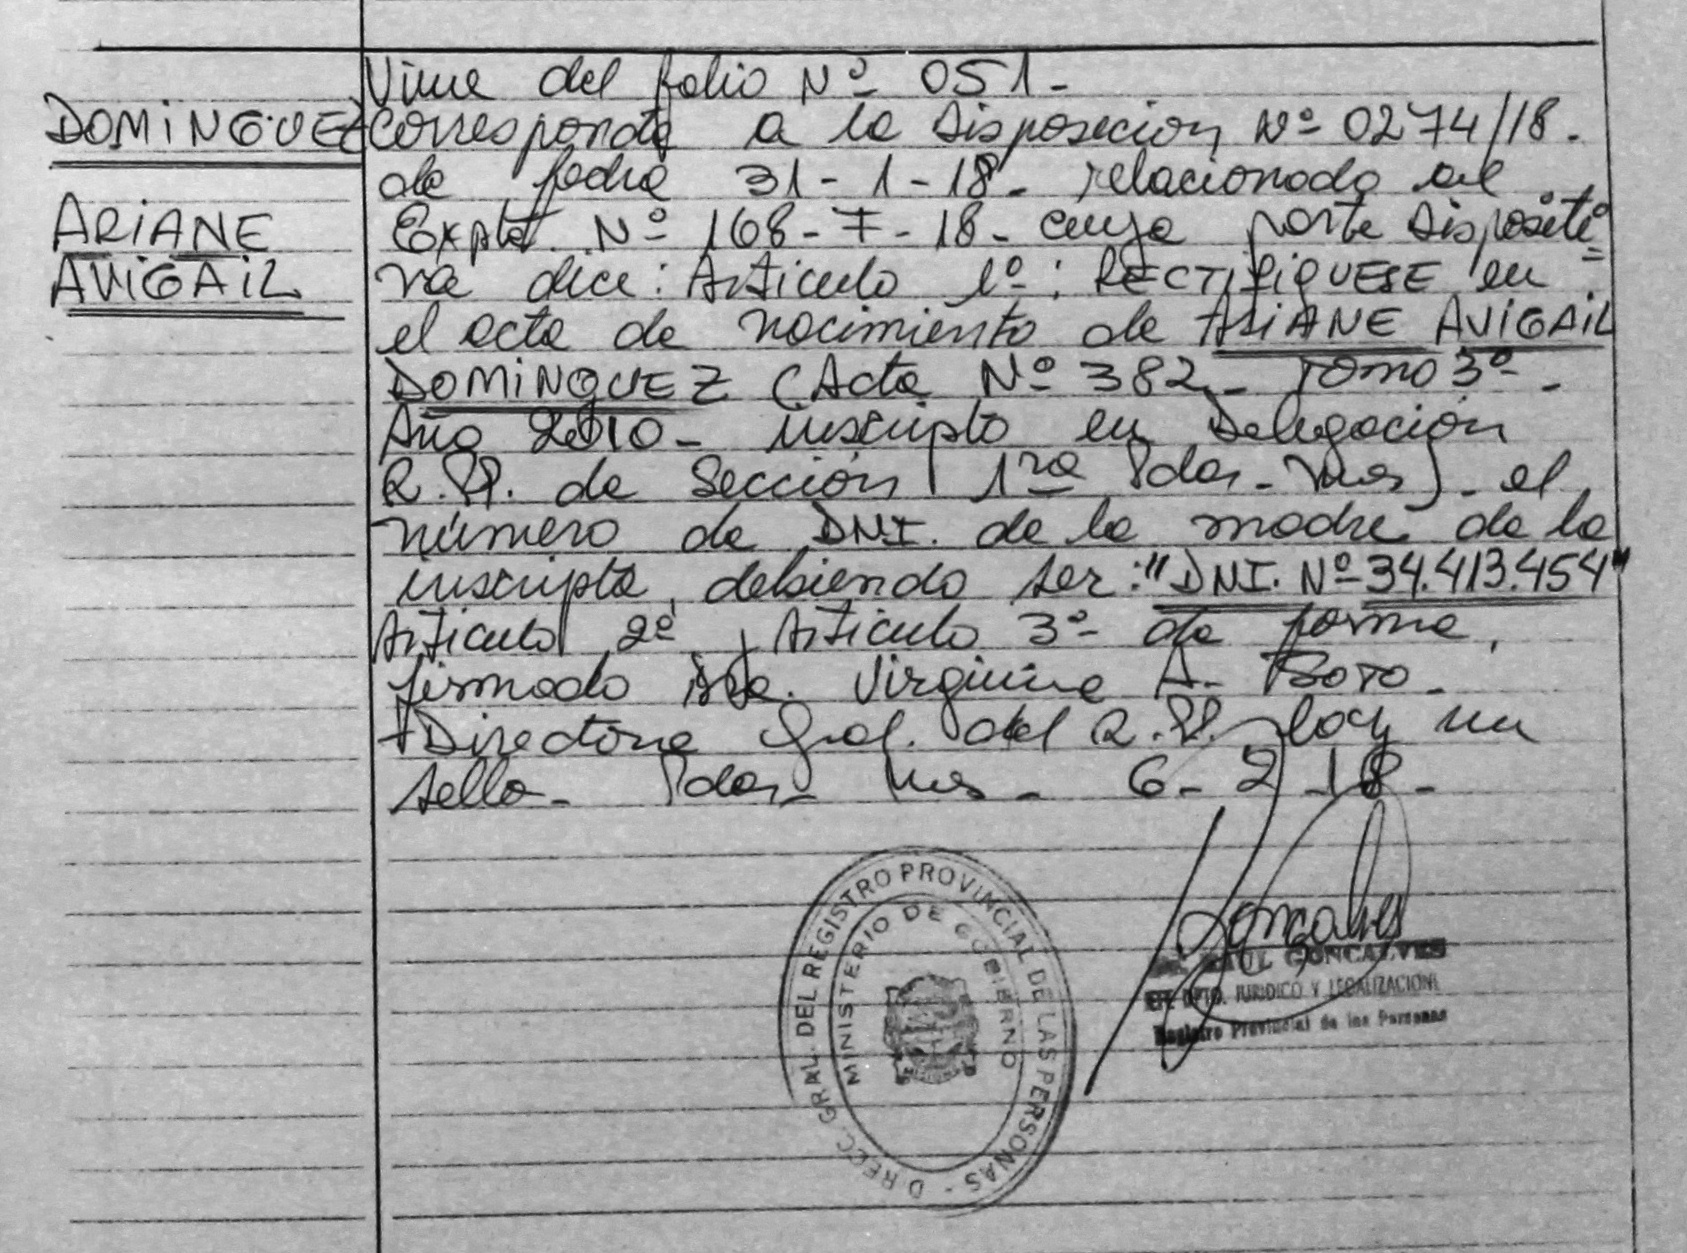 DOMiNGUEZ
ARiANE
AViGAiL
Viene del folio Nº 051-
Corresponde a la Disposicion Nº 0274/18.
de fecha 31-1-18- relacionado al
Expte. Nº 168-7-18- cuya parte Dispositi=
va dice: Articulo 1º: RECTIFIQUESE en
el acta de nacimiento de ARiANE AViGAiL
DOMiNGUEZ (Acta Nº 382- Tomo 3º-
Año 2010- inscripto en Delegación
R.PP. de Sección 1ra Pdas-Mnes)- el
número de DNI. de la madre de la
inscripta, debiendo ser: "DNI. Nº 34.413.454"
Articulo 2º y Articulo 3º- de forma,
firmado Virginia A. BOTO-
Directora Gral. del R.PP. Hay un
sello- Pdas- Mnes- 6-2-18-
DIRECC. GRAL. DEL REGISTRO PROVINCIAL DE LAS PERSONAS -
MINISTERIO DE GOBIERNO
Goncalves
RAUL GONCALVES
DPTO. JURIDICO Y LEGALIZACION
Registro Provincial de las Personas